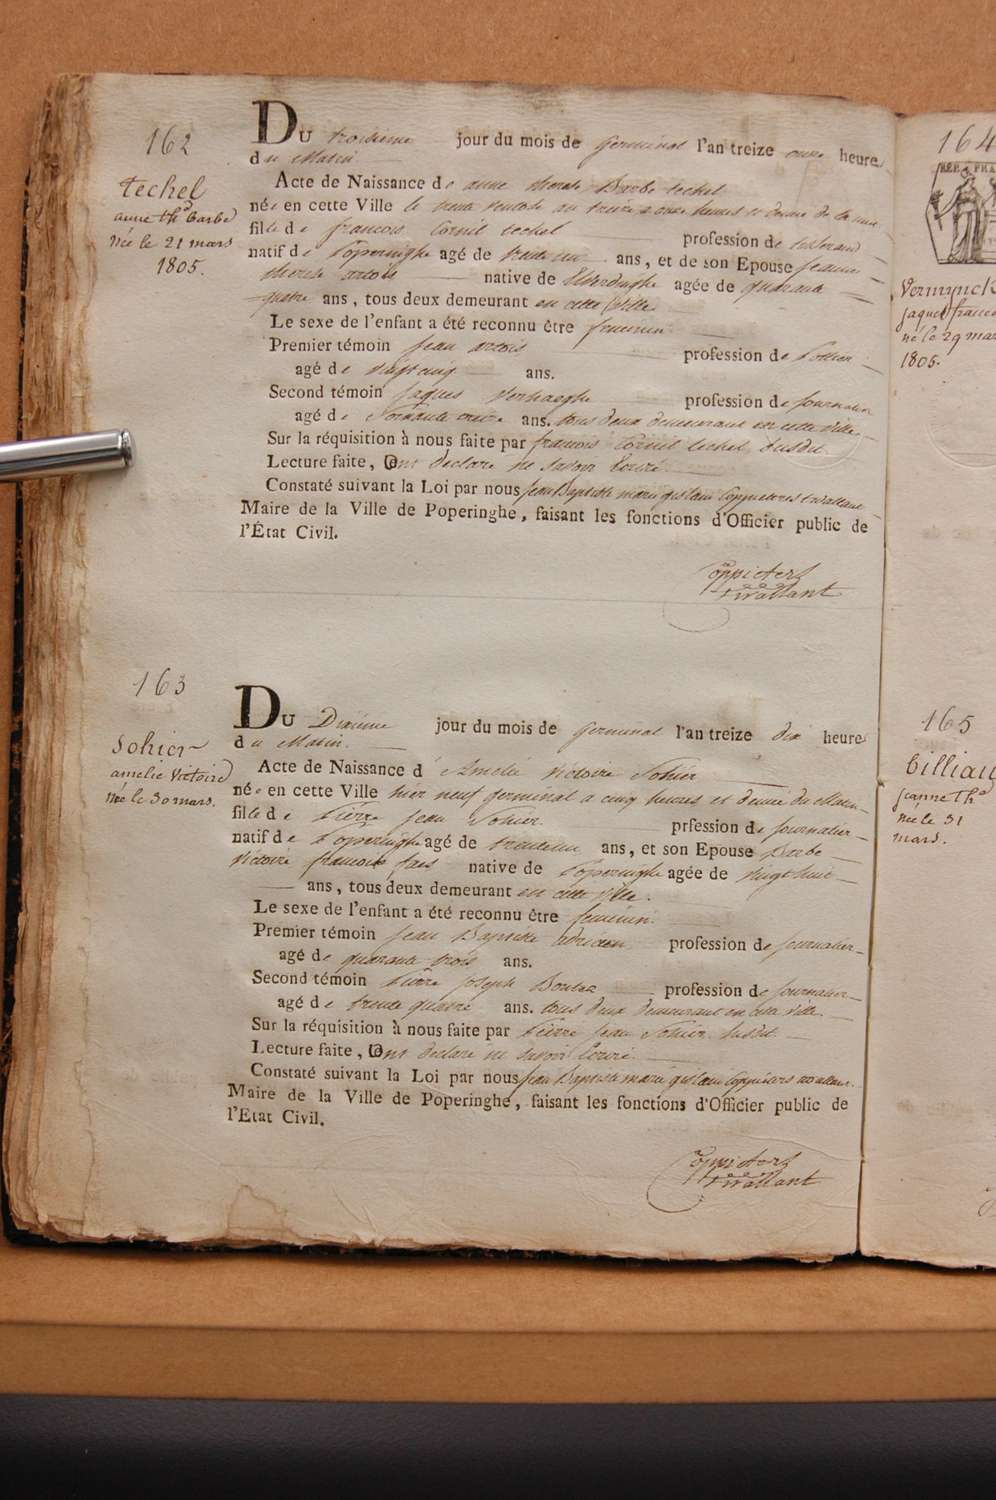 162
techel
anne thd barbe
née le 21 mars
1805.
DU troisieme jour du mois de germinal l'an treize onze heure
du Matin
Acte de Naissance de anne therese Barbe techel
née en cette Ville le trente ventose an treize a onze heures et demie de la nuit
fille de francois Cornil techel profession de tisserand
natif de Poperinghe agé de trente un ans, et de son Epouse Jeanne
therese artois native de Elverdinghe agée de quarante
quatre ans, tous deux demeurant en cette Ville
Le sexe de l'enfant a été reconnu être feminin
Premier témoin Jean artois profession de
agé de vingt cinq ans.
Second témoin Jaques Verhaeghe profession de Journalier
agé de ans. tous deux demeurant en cette ville
Sur la réquisition à nous faite par francois Cornil techel susdit
Lecture faite, Ont declaré ne savoir Ecrire
Constaté suivant la Loi par nous Jean Baptiste marie gislain Coppieters t'wallant
Maire de la Ville de Poperinghe, faisant les fonctions d'Officier public de
l'État Civil.
Coppieters
t'wallant
163
Sohier
amelie Victoire
née le 30 mars.
DU Dixieme jour du mois de germinal l'an treize dix heure
du Matin.
Acte de Naissance d'Amelie Victoire Sohier
née en cette Ville hier neuf germinal a cinq heures et demie du Matin
fille de Pierre Jean Sohier prfession de Journalier
natif de Poperinghe agé de trente un ans, et son Epouse Barbe
Victoire francoise faes native de Poperinghe agée de vingt huit
ans, tous deux demeurant en cette ville.
Le sexe de l'enfant a été reconnu être feminin.
Premier témoin Jean Baptiste profession de Journalier
agé de quarante trois ans.
Second témoin Pierre Joseph Boutez profession de Journalier
agé de trente quatre ans. tous deux demeurant en cette ville.
Sur la réquisition à nous faite par Pierre Jean Sohier susdit
Lecture faite, Ont declaré ne savoir Ecrire
Constaté suivant la Loi par nous Jean Baptiste marie gislain Coppieters t'wallant.
Maire de la Ville de Poperinghe, faisant les fonctions d'Officier public de
l'Etat Civil.
Coppieters
t'wallant
164
RÉP. FRA
Vermynck
jaques
née le 29 mar
1805.
165
billiau
jeanne thd
née le 31
mars.